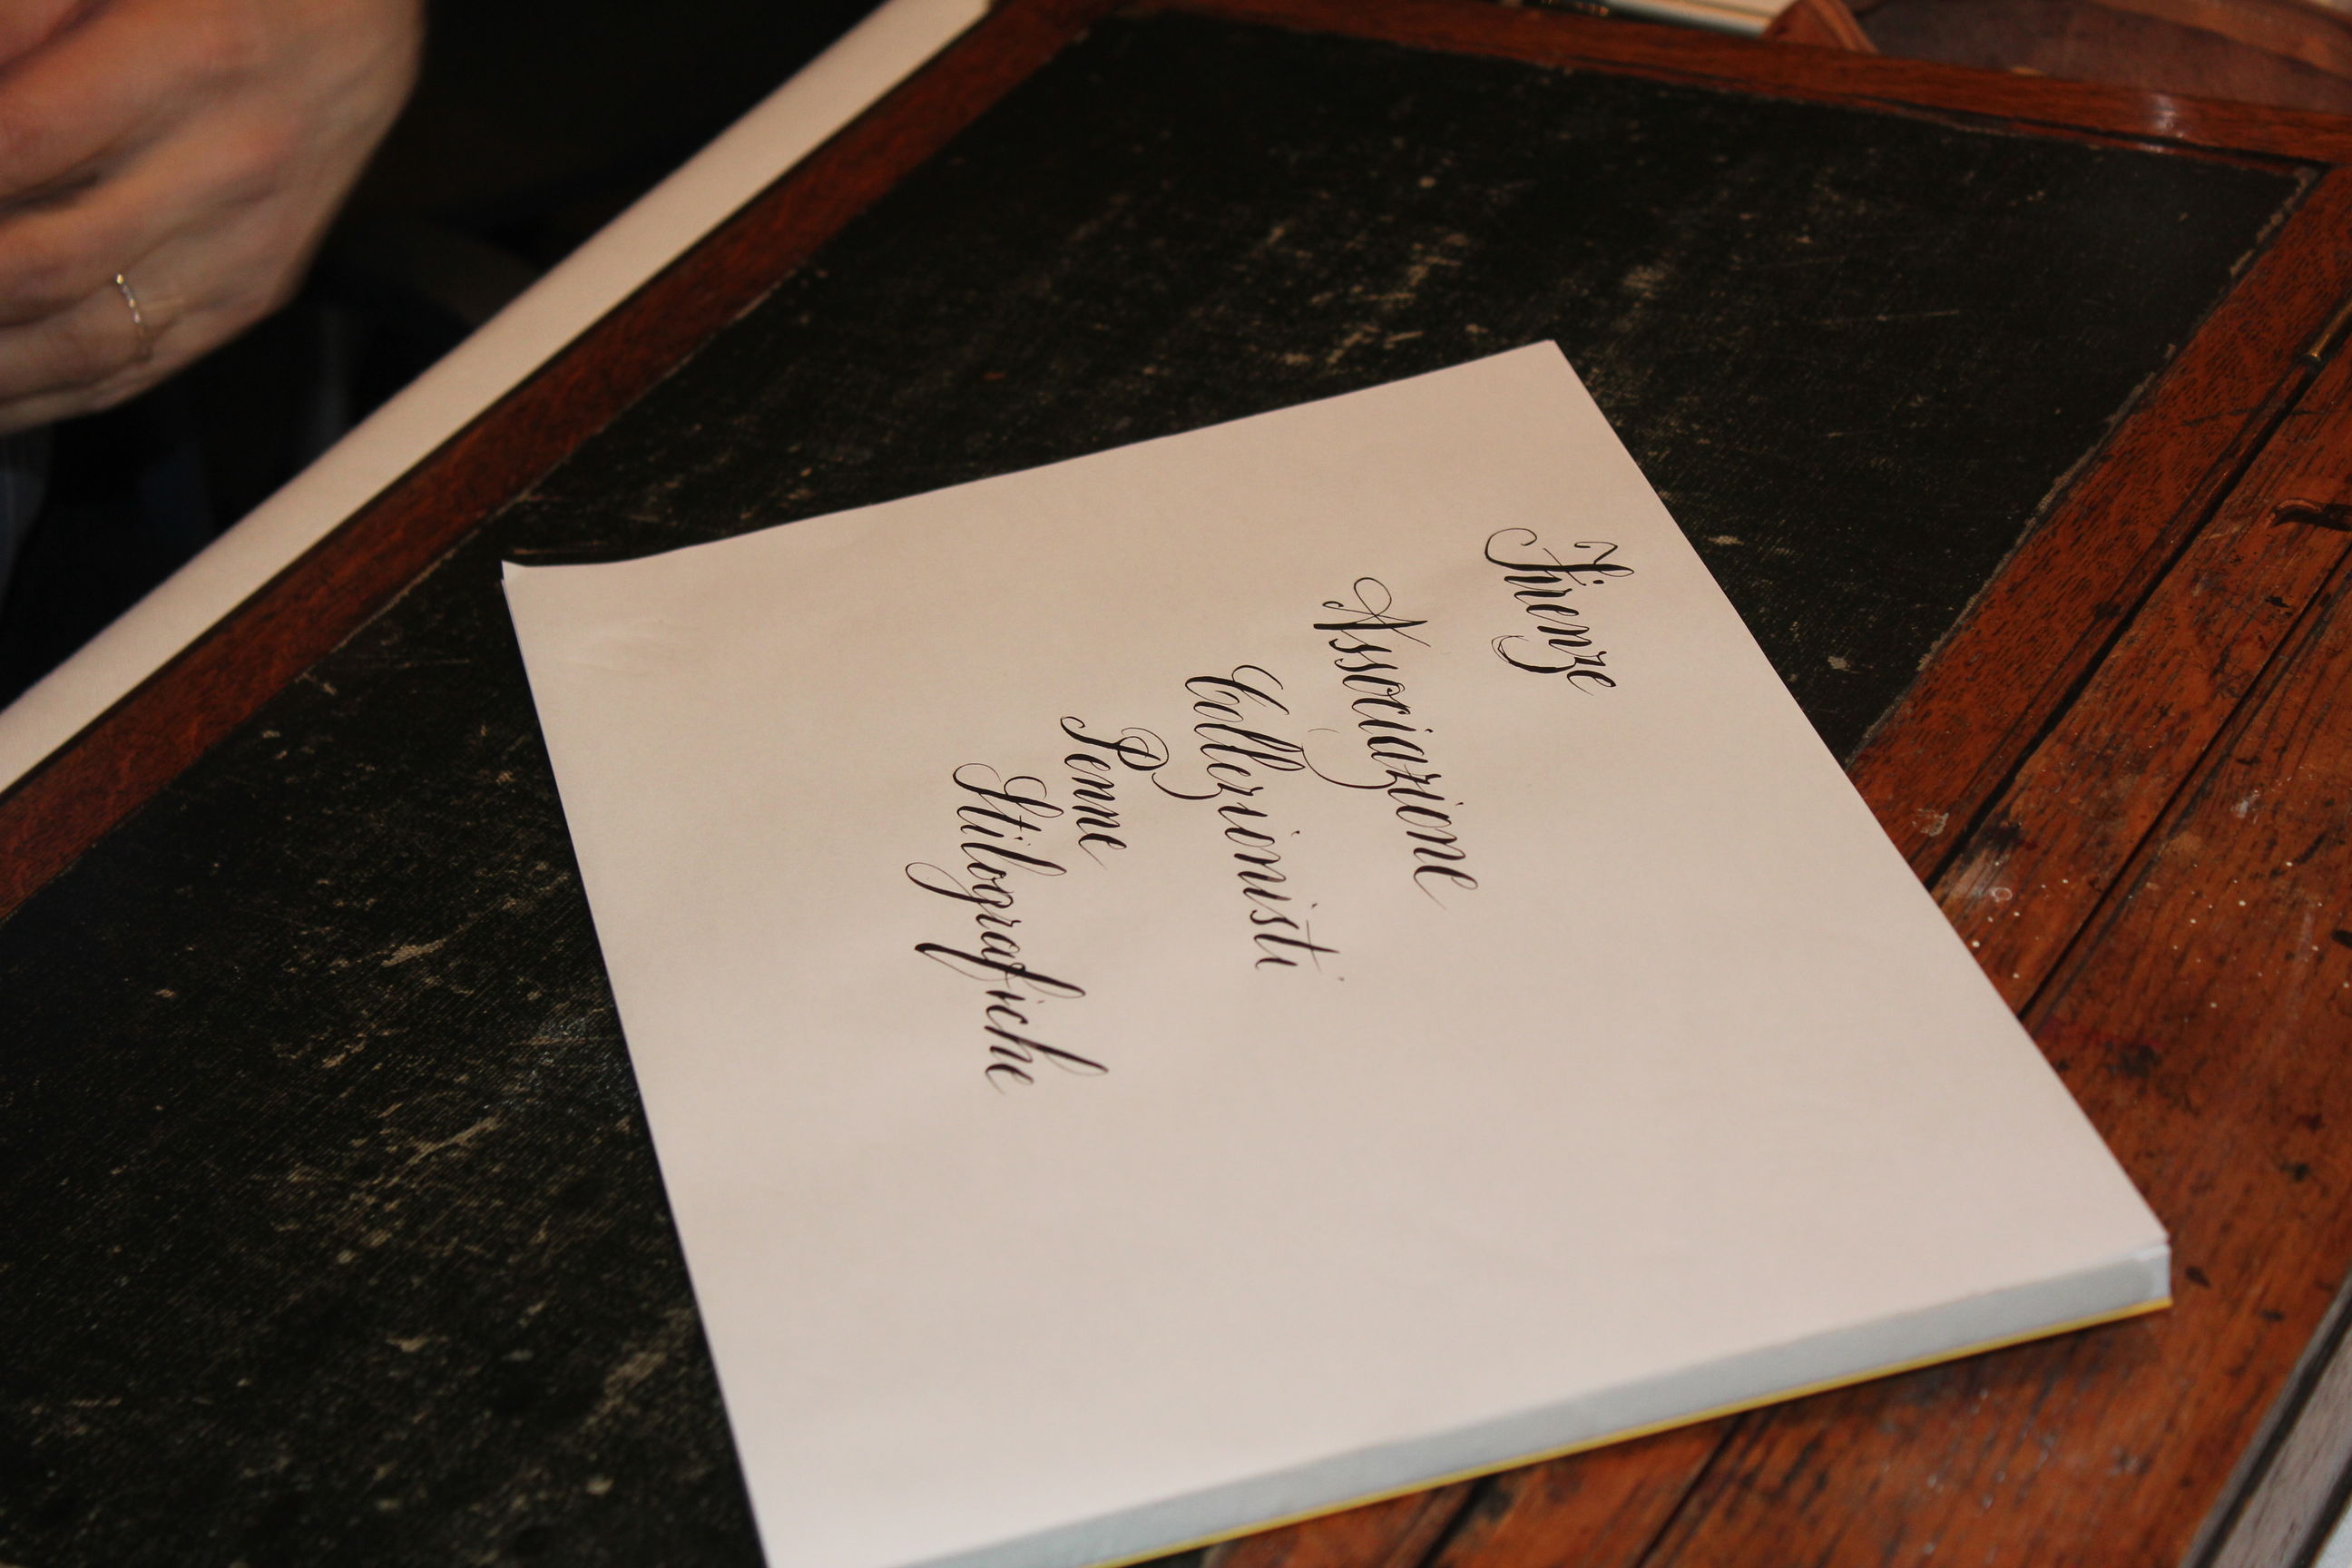 Firenze
Associazione
Collezionisti
Penne
Stilografiche